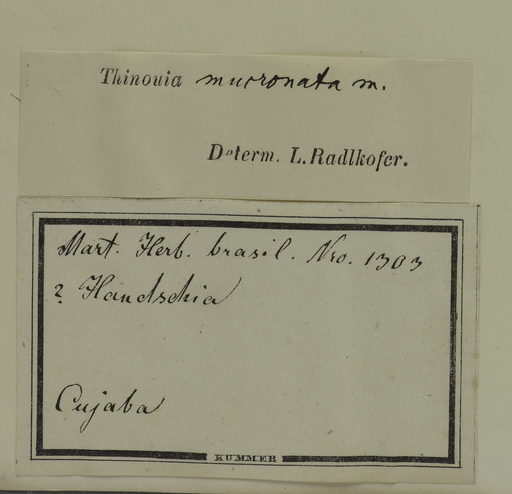 Thinouia mucronata m.
Determ. L. Radlkofer.
Mart. Herb. brasil. Nro. 1303
? Handschia
Cujaba
KUMMER